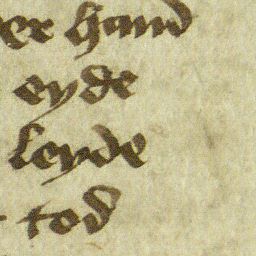 er hand
eyde
leyde
tod